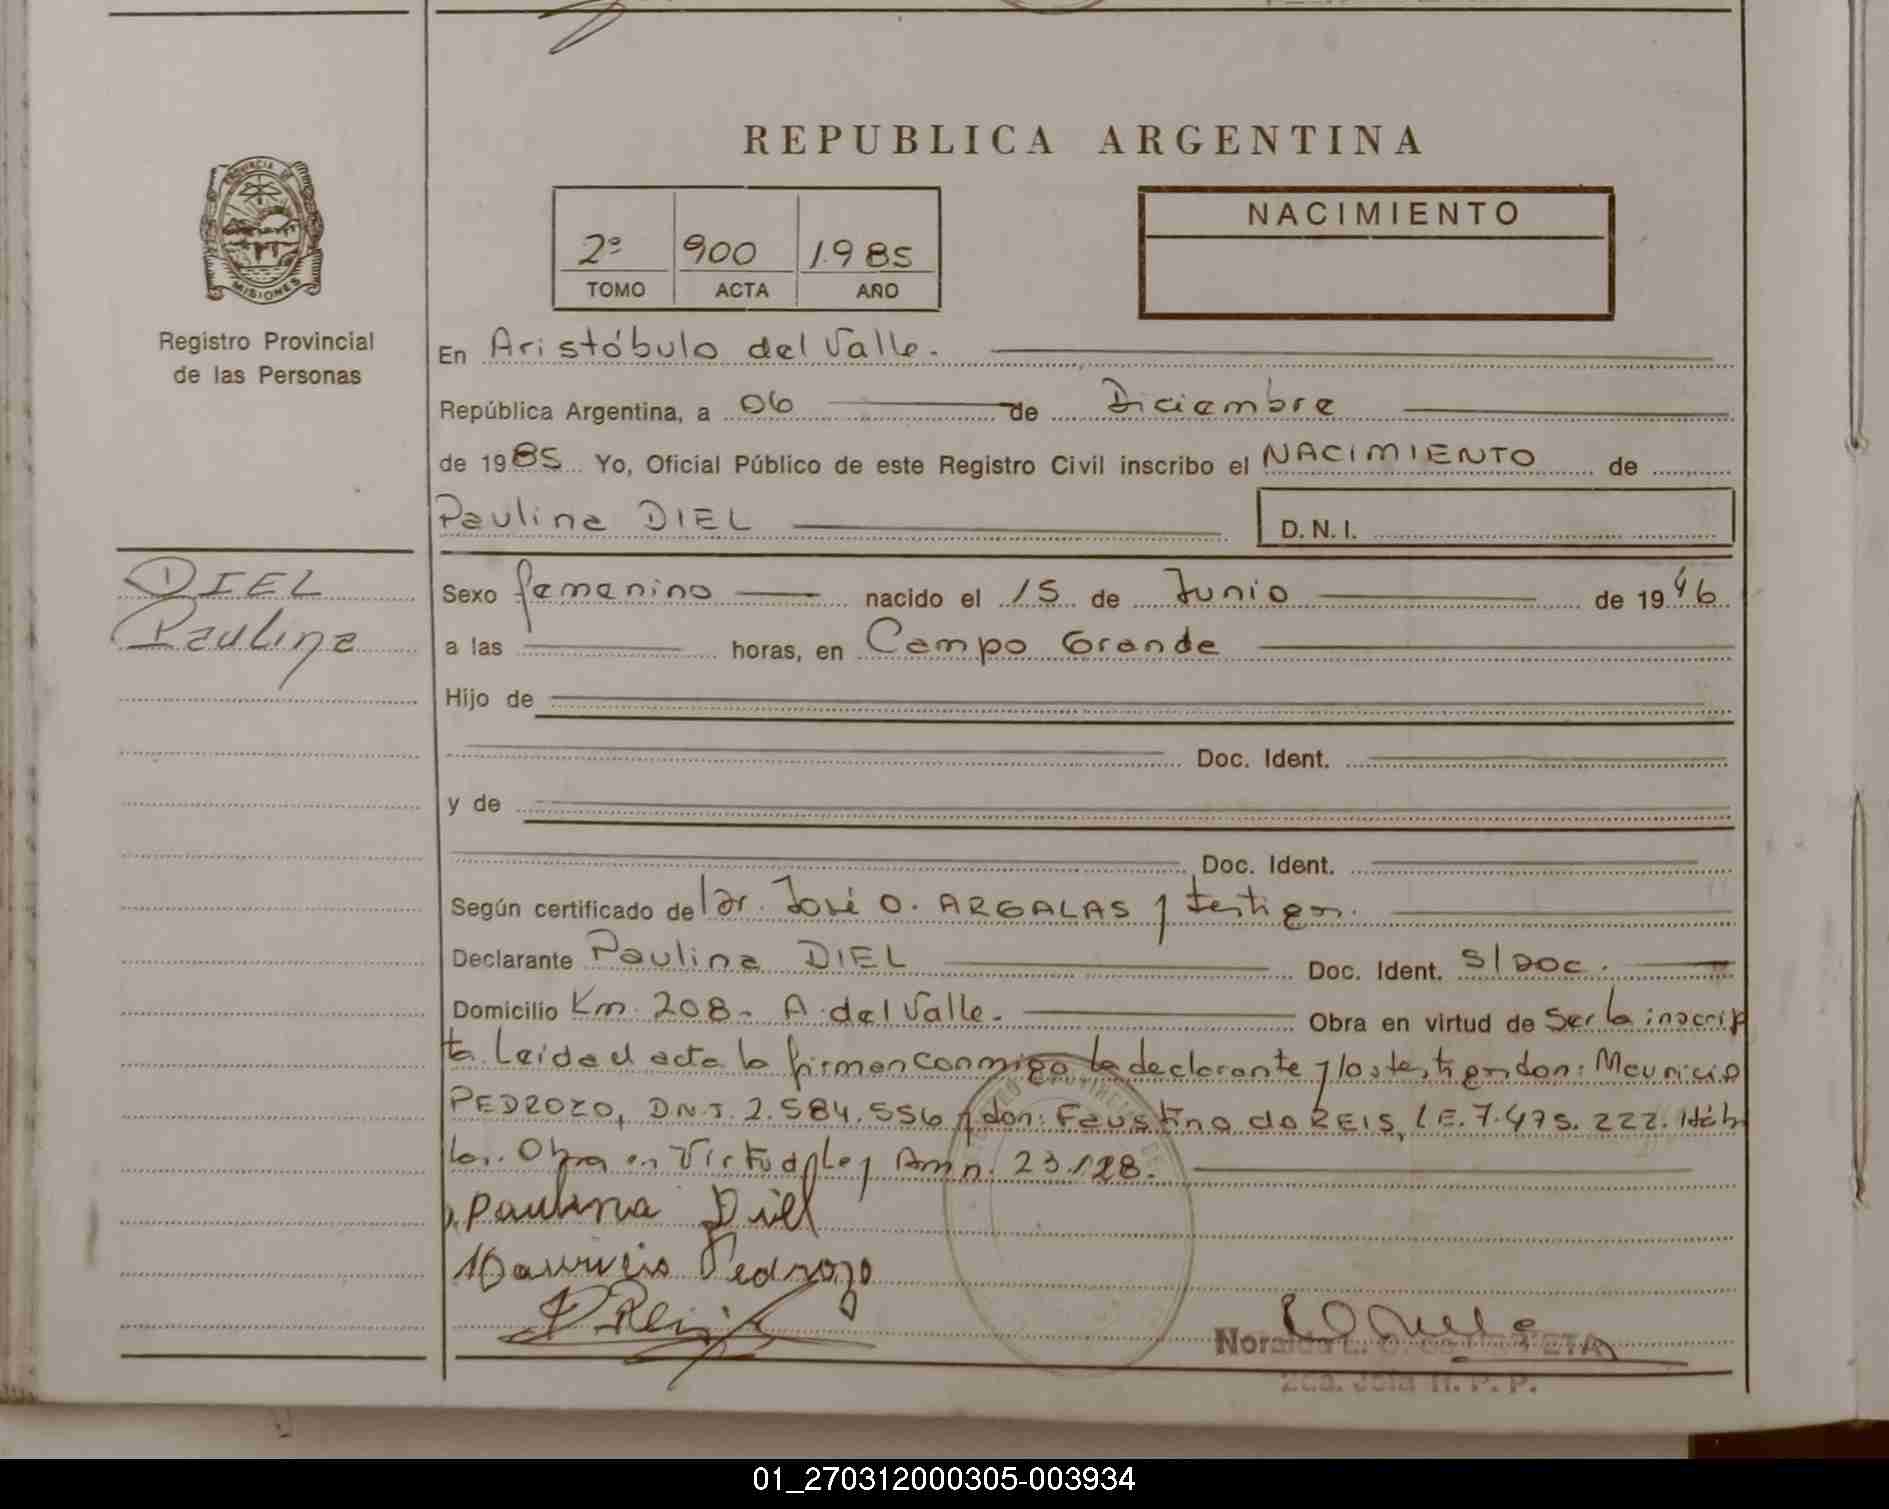 REPUBLICA ARGENTINA
PROVINCIA DE
MISIONES
Registro Provincial
de las Personas
2º 900 1985
TOMO ACTA AÑO
NACIMIENTO
En Aristóbulo del Valle.
República Argentina, a 06 de Diciembre
de 1985 Yo, Oficial Público de este Registro Civil inscribo el NACIMIENTO de
Paulina DIEL D. N. I.
DIEL
Paulina
Sexo femenino nacido el 15 de Junio de 1946
a las horas, en Campo Grande
Hijo de
Doc. Ident.
y de
Doc. Ident.
Según certificado del Dr. José O. ARGALAS y testigos.
Declarante Paulina DIEL Doc. Ident. S/DOC.
Domicilio Km. 208- A. del Valle. Obra en virtud de Ser la inscrip
ta. Leida el acta la firman conmigo la declarante y los testigos don: Mauricio
PEDROZO, D.N.I. 2.584.556 y don: Faustino do REIS, L.E. 7.475.222. Háb
les. Obra en Virtud Ley Amn. 23.128.
Paulina Diel
Mauricio Pedrozo
2da. Jefa R. P. P.
01_270312000305-003934